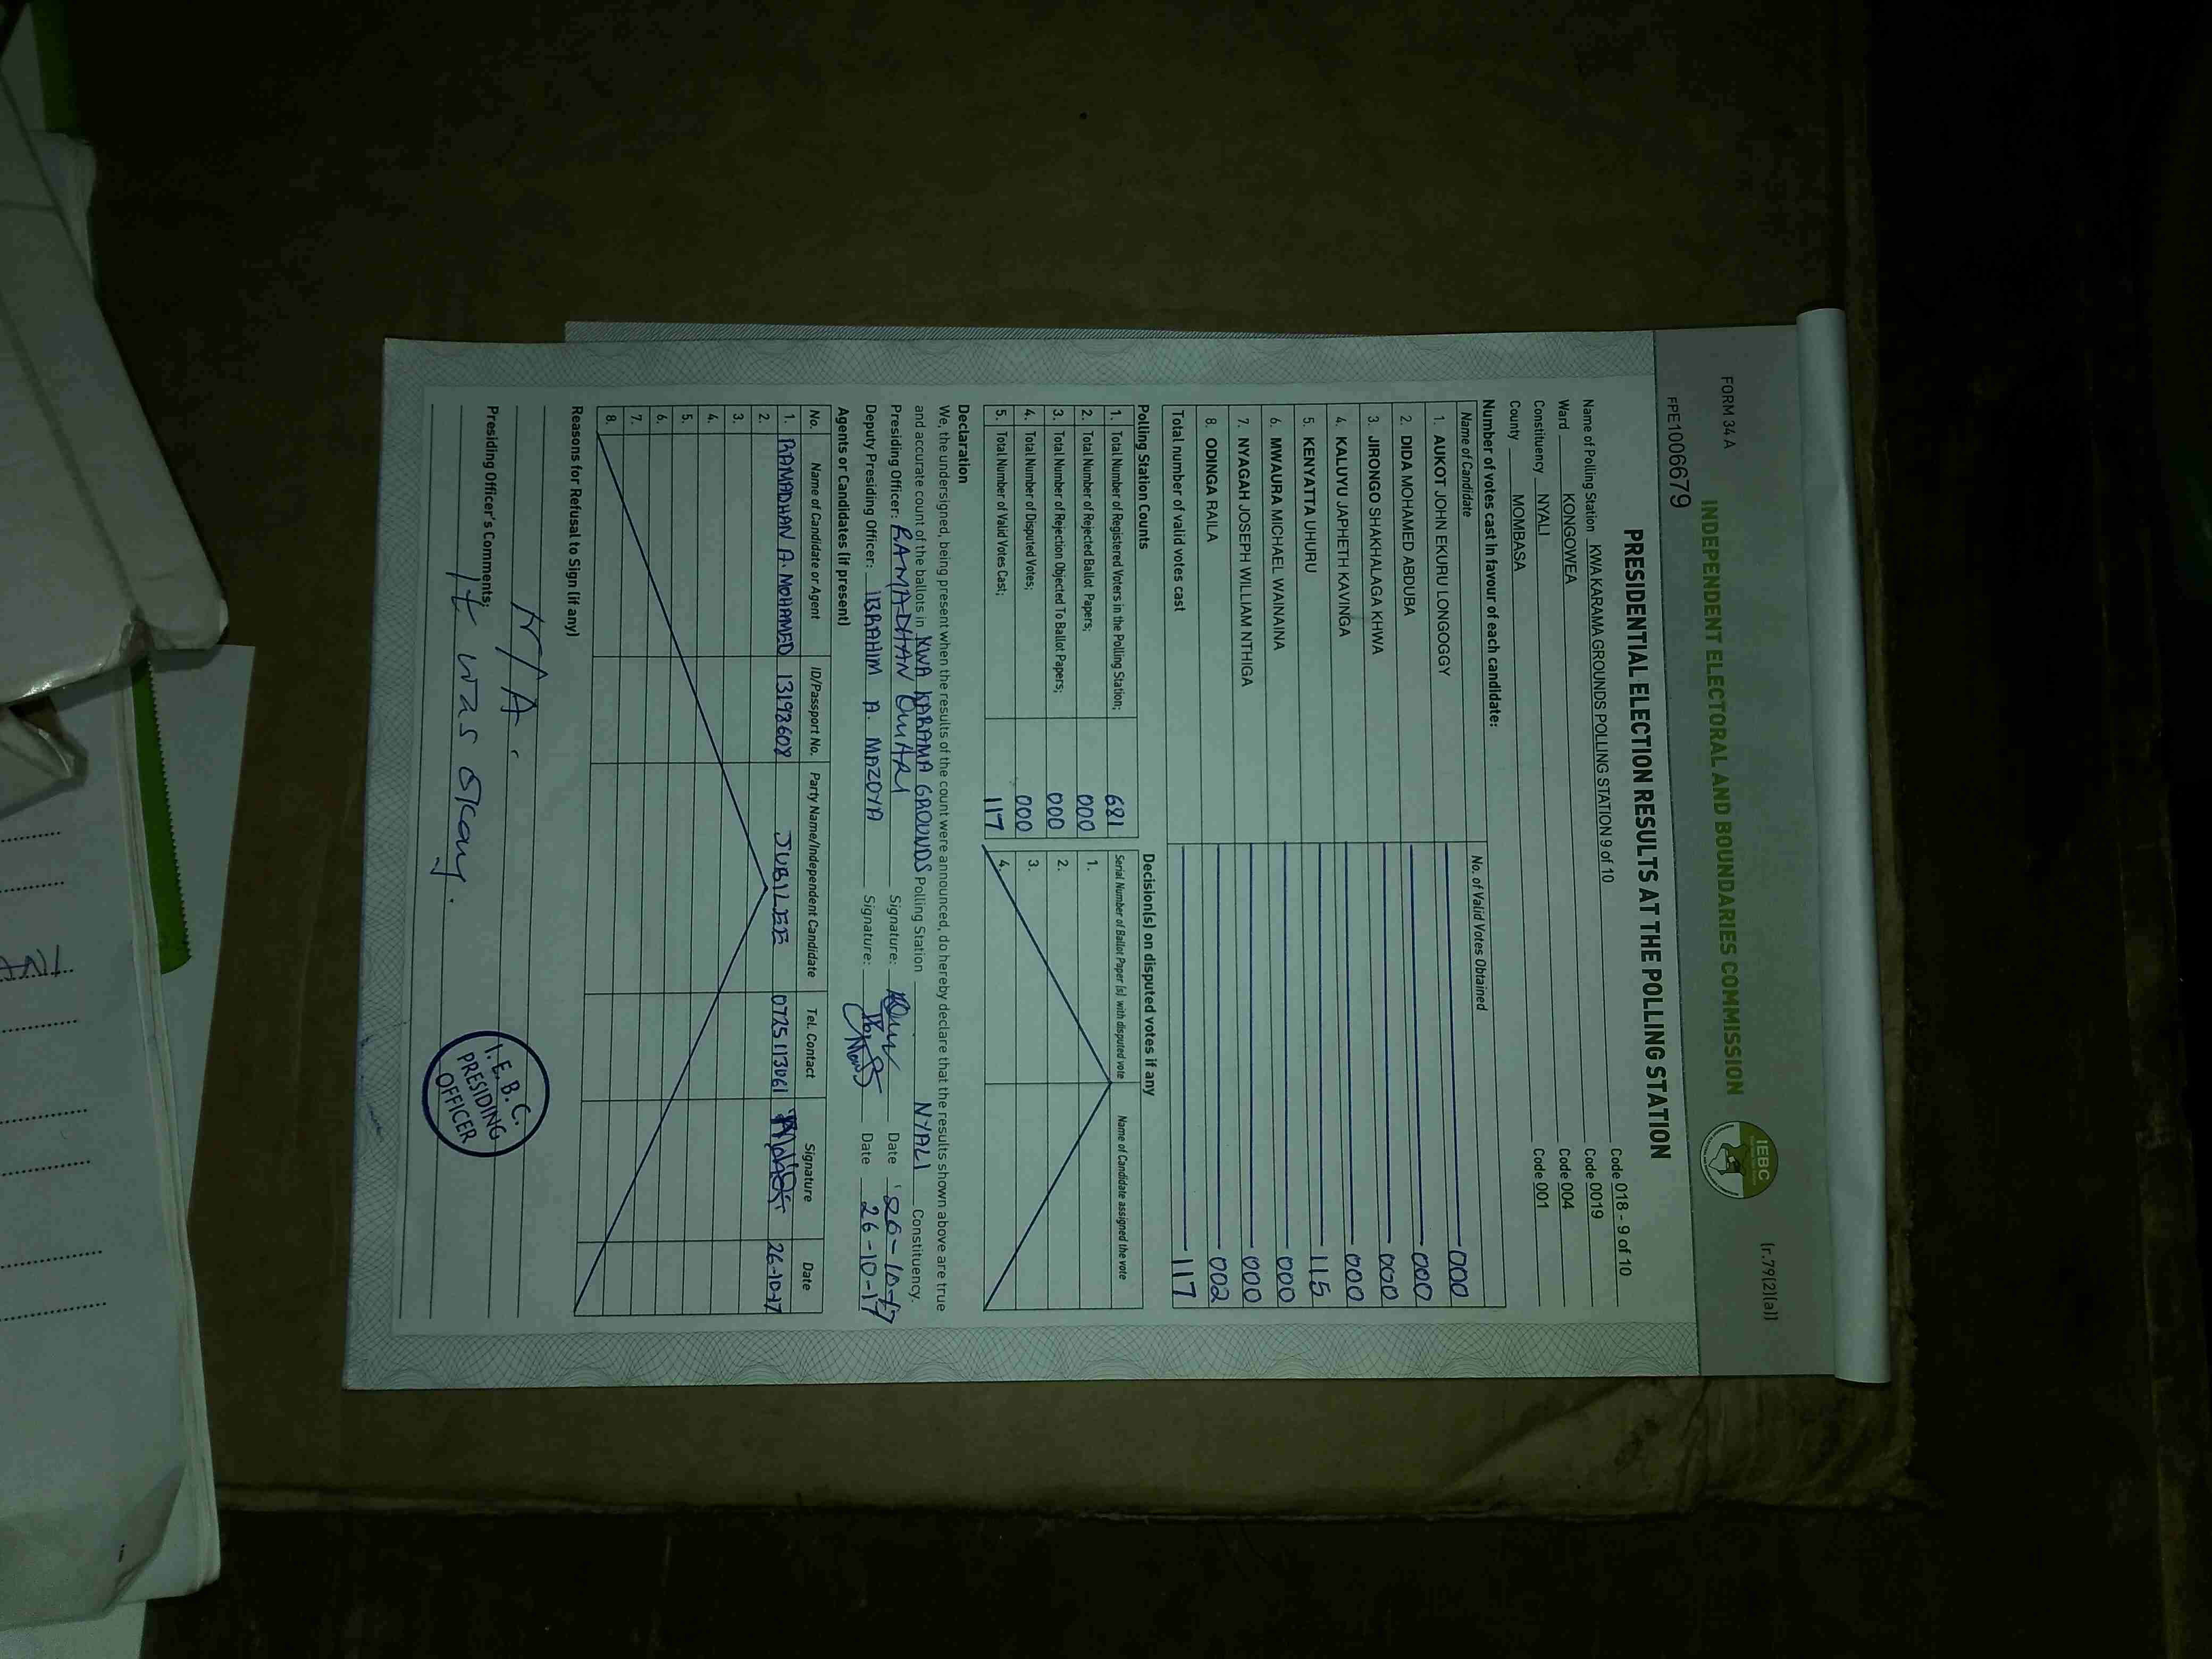 FORM 34 A
(r.79(2)(a))
INDEPENDENT ELECTORAL AND BOUNDARIES COMMISSION
IEBC
FPE1006679
PRESIDENTIAL ELECTION RESULTS AT THE POLLING STATION
Name of Polling Station KWA KARAMA GROUNDS POLLING STATION 9 of 10 Code 018 - 9 of 10
Ward KONGOWEA Code 0019
Constituency NYALI Code 004
County MOMBASA Code 001
Number of votes cast in favour of each candidate:
Name of Candidate No. of Valid Votes Obtained
1. AUKOT JOHN EKURU LONGOGGY 000
2. DIDA MOHAMED ABDUBA 000
3. JIRONGO SHAKHALAGA KHWA 000
4. KALUYU JAPHETH KAVINGA 000
5. KENYATTA UHURU 115
6. MWAURA MICHAEL WAINAINA 000
7. NYAGAH JOSEPH WILLIAM NTHIGA 000
8. ODINGA RAILA 002
Total number of valid votes cast 117
Polling Station Counts
1. Total Number of Registered Voters in the Polling Station; 681
2. Total Number of Rejected Ballot Papers; 000
3. Total Number of Rejection Objected To Ballot Papers; 000
4. Total Number of Disputed Votes; 000
5. Total Number of Valid Votes Cast; 117
Decision(s) on disputed votes if any
Serial Number of Ballot Paper (s) with disputed vote Name of Candidate assigned the vote
1.
2.
3.
4.
Declaration
We, the undersigned, being present when the results of the count were announced, do hereby declare that the results shown above are true
and accurate count of the ballots in KWA KARAMA GROUNDS Polling Station NYALI Constituency.
Presiding Officer: RAMADHAN OMARI Signature: Date 26-10-17
Deputy Presiding Officer: IBRAHIM A. MAZOYA Signature: Date 26-10-17
Agents or Candidates (if present)
No. Name of Candidate or Agent ID/Passport No. Party Name/Independent Candidate Tel. Contact Signature Date
1. RAMADHAN A. MOHAMED 13192608 JUBILEE 0725113061 26-10-17
2.
3.
4.
5.
6.
7.
8.
Reasons for Refusal to Sign (if any)
N/A.
Presiding Officer's Comments;
It was okay.
I. E. B. C.
PRESIDING
OFFICER